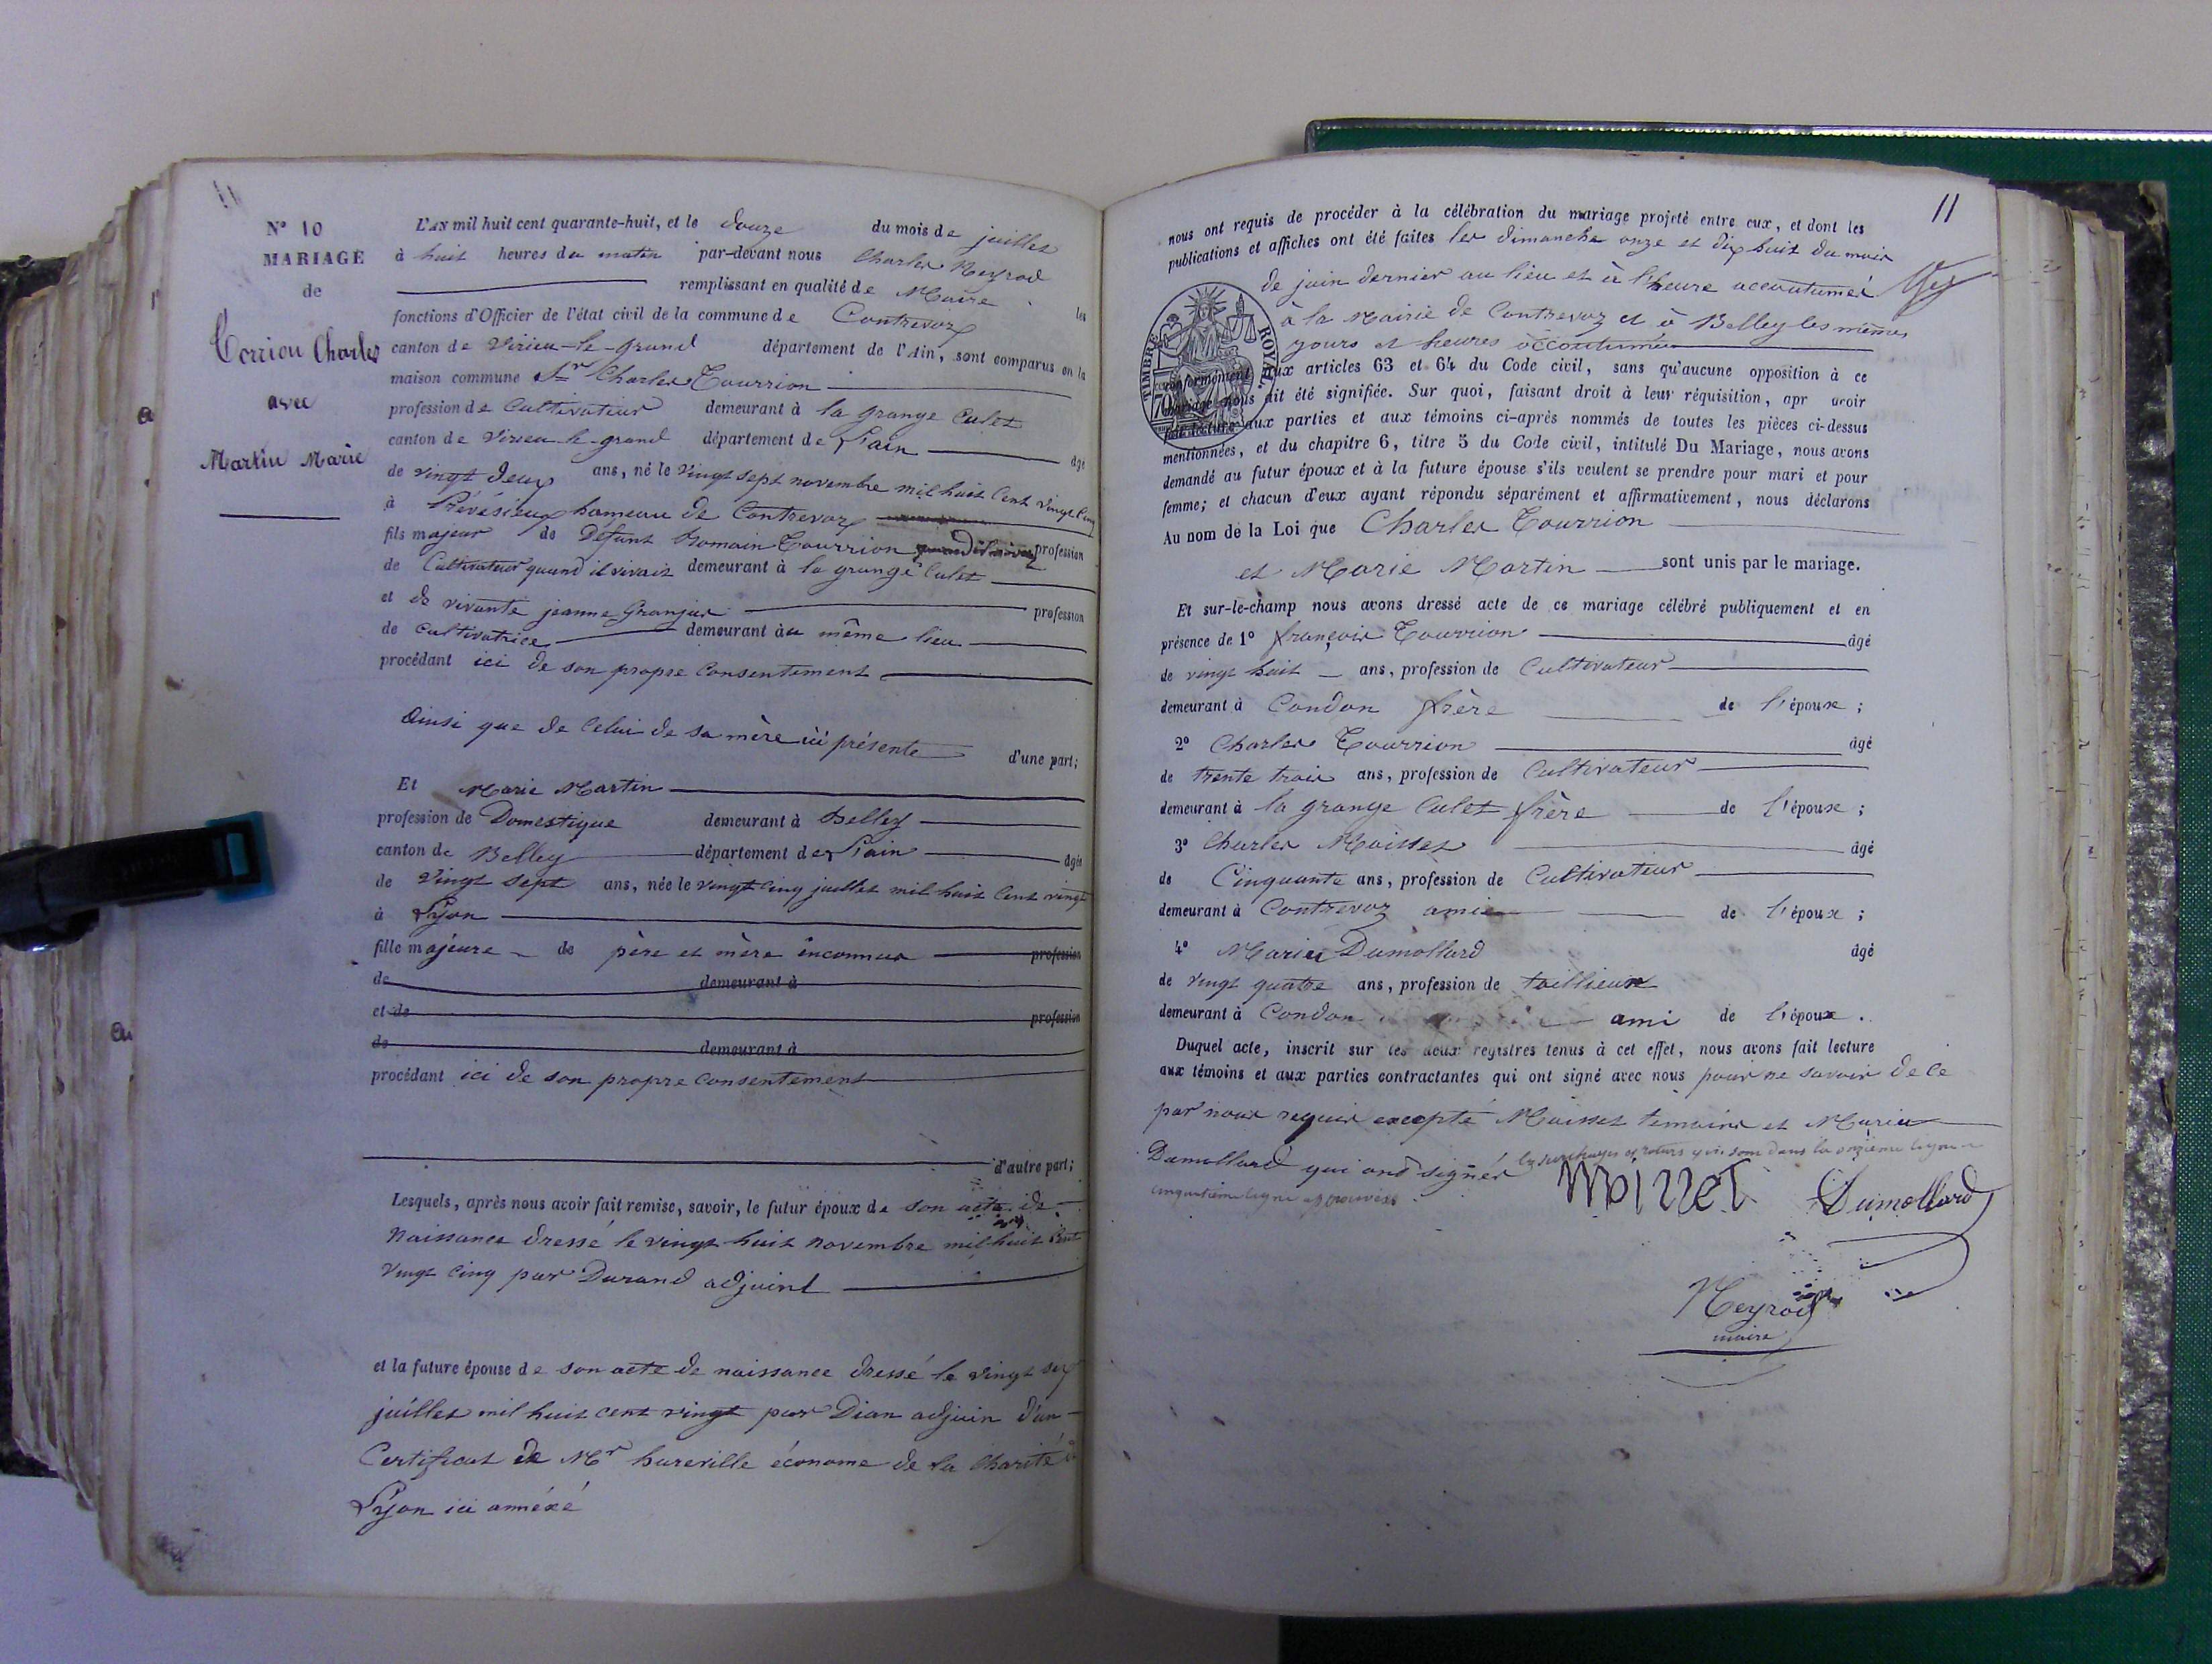 11
N° 10
MARIAGE
de
Torrion Charles
avec
Martin Marie
L'AN mil huit cent quarante-huit, et le douze du mois de juillet
à huit heures du matin par-devant nous Charles Neyrod
remplissant en qualité de Maire les
fonctions d'Officier de l'état civil de la commune de Contrevoz
canton de Virieu-le-grand département de l'Ain, sont comparus en la
maison commune Sr Charles Tourrion
profession de Cultivateur demeurant à la grange Culet
canton de Virieu-le-grand département de l'ain âgé
de vingt deux ans, né le vingt sept novembre mil huit Cent vingt Cinq
à Prévésieux hameau de Contrevoz
fils majeur de Défunt Romain Tourrion profession
de Cultivateur quand il vivait demeurant à la grange Culet
et de vivante jeanne Granjeir profession
de cultivatrice demeurant au même lieu
procédant ici de son propre Consentement
Ainsi que de Celui de sa mère ici présente d'une part;
Et Marie Martin
profession de Domestique demeurant à Belley
canton de Belley département de l'ain âgée
de Vingt sept ans, née le vingt Cinq juillet mil huit Cent vingt
à Lyon
fille majeure de père et mère inconnus profession
de demeurant à
et de profession
de demeurant à
procédant ici de son propre Consentement
d'autre part;
Lesquels, après nous avoir fait remise, savoir, le futur époux de son acte de
Naissance dressé le vingt huit novembre mil huit Cent
vingt Cinq par Durand adjoint
et la future épouse de son acte de naissance dressé le vingt six
juillet mil huit cent vingt par Dian adjoin d'un
Certificat de Mr hureville économe de la Charité à
Lyon ici annéxé
11
nous ont requis de procéder à la célébration du mariage projeté entre eux, et dont les
publications et affiches ont été faites les dimanche onze et dix huit du mois
de juin dernier au lieu et à l'heure accoutumés
à la Mairie de Contrevoz et à Belley les mêmes
yours et heures accoutumés
TIMBRE ROYAL.
70
conformément aux articles 63 et 64 du Code civil, sans qu'aucune opposition à ce
mariage nous ait été signifiée. Sur quoi, faisant droit à leur réquisition, apr avoir
fait lecture aux parties et aux témoins ci-après nommés de toutes les pièces ci-dessus
mentionnées, et du chapitre 6, titre 5 du Code civil, intitulé Du Mariage, nous avons
demandé au futur époux et à la future épouse s'ils veulent se prendre pour mari et pour
femme; et chacun d'eux ayant répondu séparément et affirmativement, nous déclarons
Au nom de la Loi que Charles Tourrion
et Marie Martin sont unis par le mariage.
Et sur-le-champ nous avons dressé acte de ce mariage célébré publiquement et en
présence de 1° françois Tourrion âgé
de vingt huit ans, profession de Cultivateur
demeurant à Condon frère de l'époux;
2° Charles Tourrion âgé
de trente trois ans, profession de Cultivateur
demeurant à la grange Culet frère de l'époux;
3° Charles Moisset âgé
de Cinquante ans, profession de Cultivateur
demeurant à Contrevoz ami de l'époux;
4° Marie Dumollard âgé
de vingt quatre ans, profession de taillieur
demeurant à Condon ami de l'époux.
Duquel acte, inscrit sur les deux registres tenus à cet effet, nous avons fait lecture
aux témoins et aux parties contractantes qui ont signé avec nous pour ne savoir de ce
par nous requis excepté Moisset temoins et Marie
Dumollard qui ont signér les surcharges et ratures qui sont dans la onzième ligne
cinquitième ligne approuvées
MOISSET Dumollard
Neyrod
maire